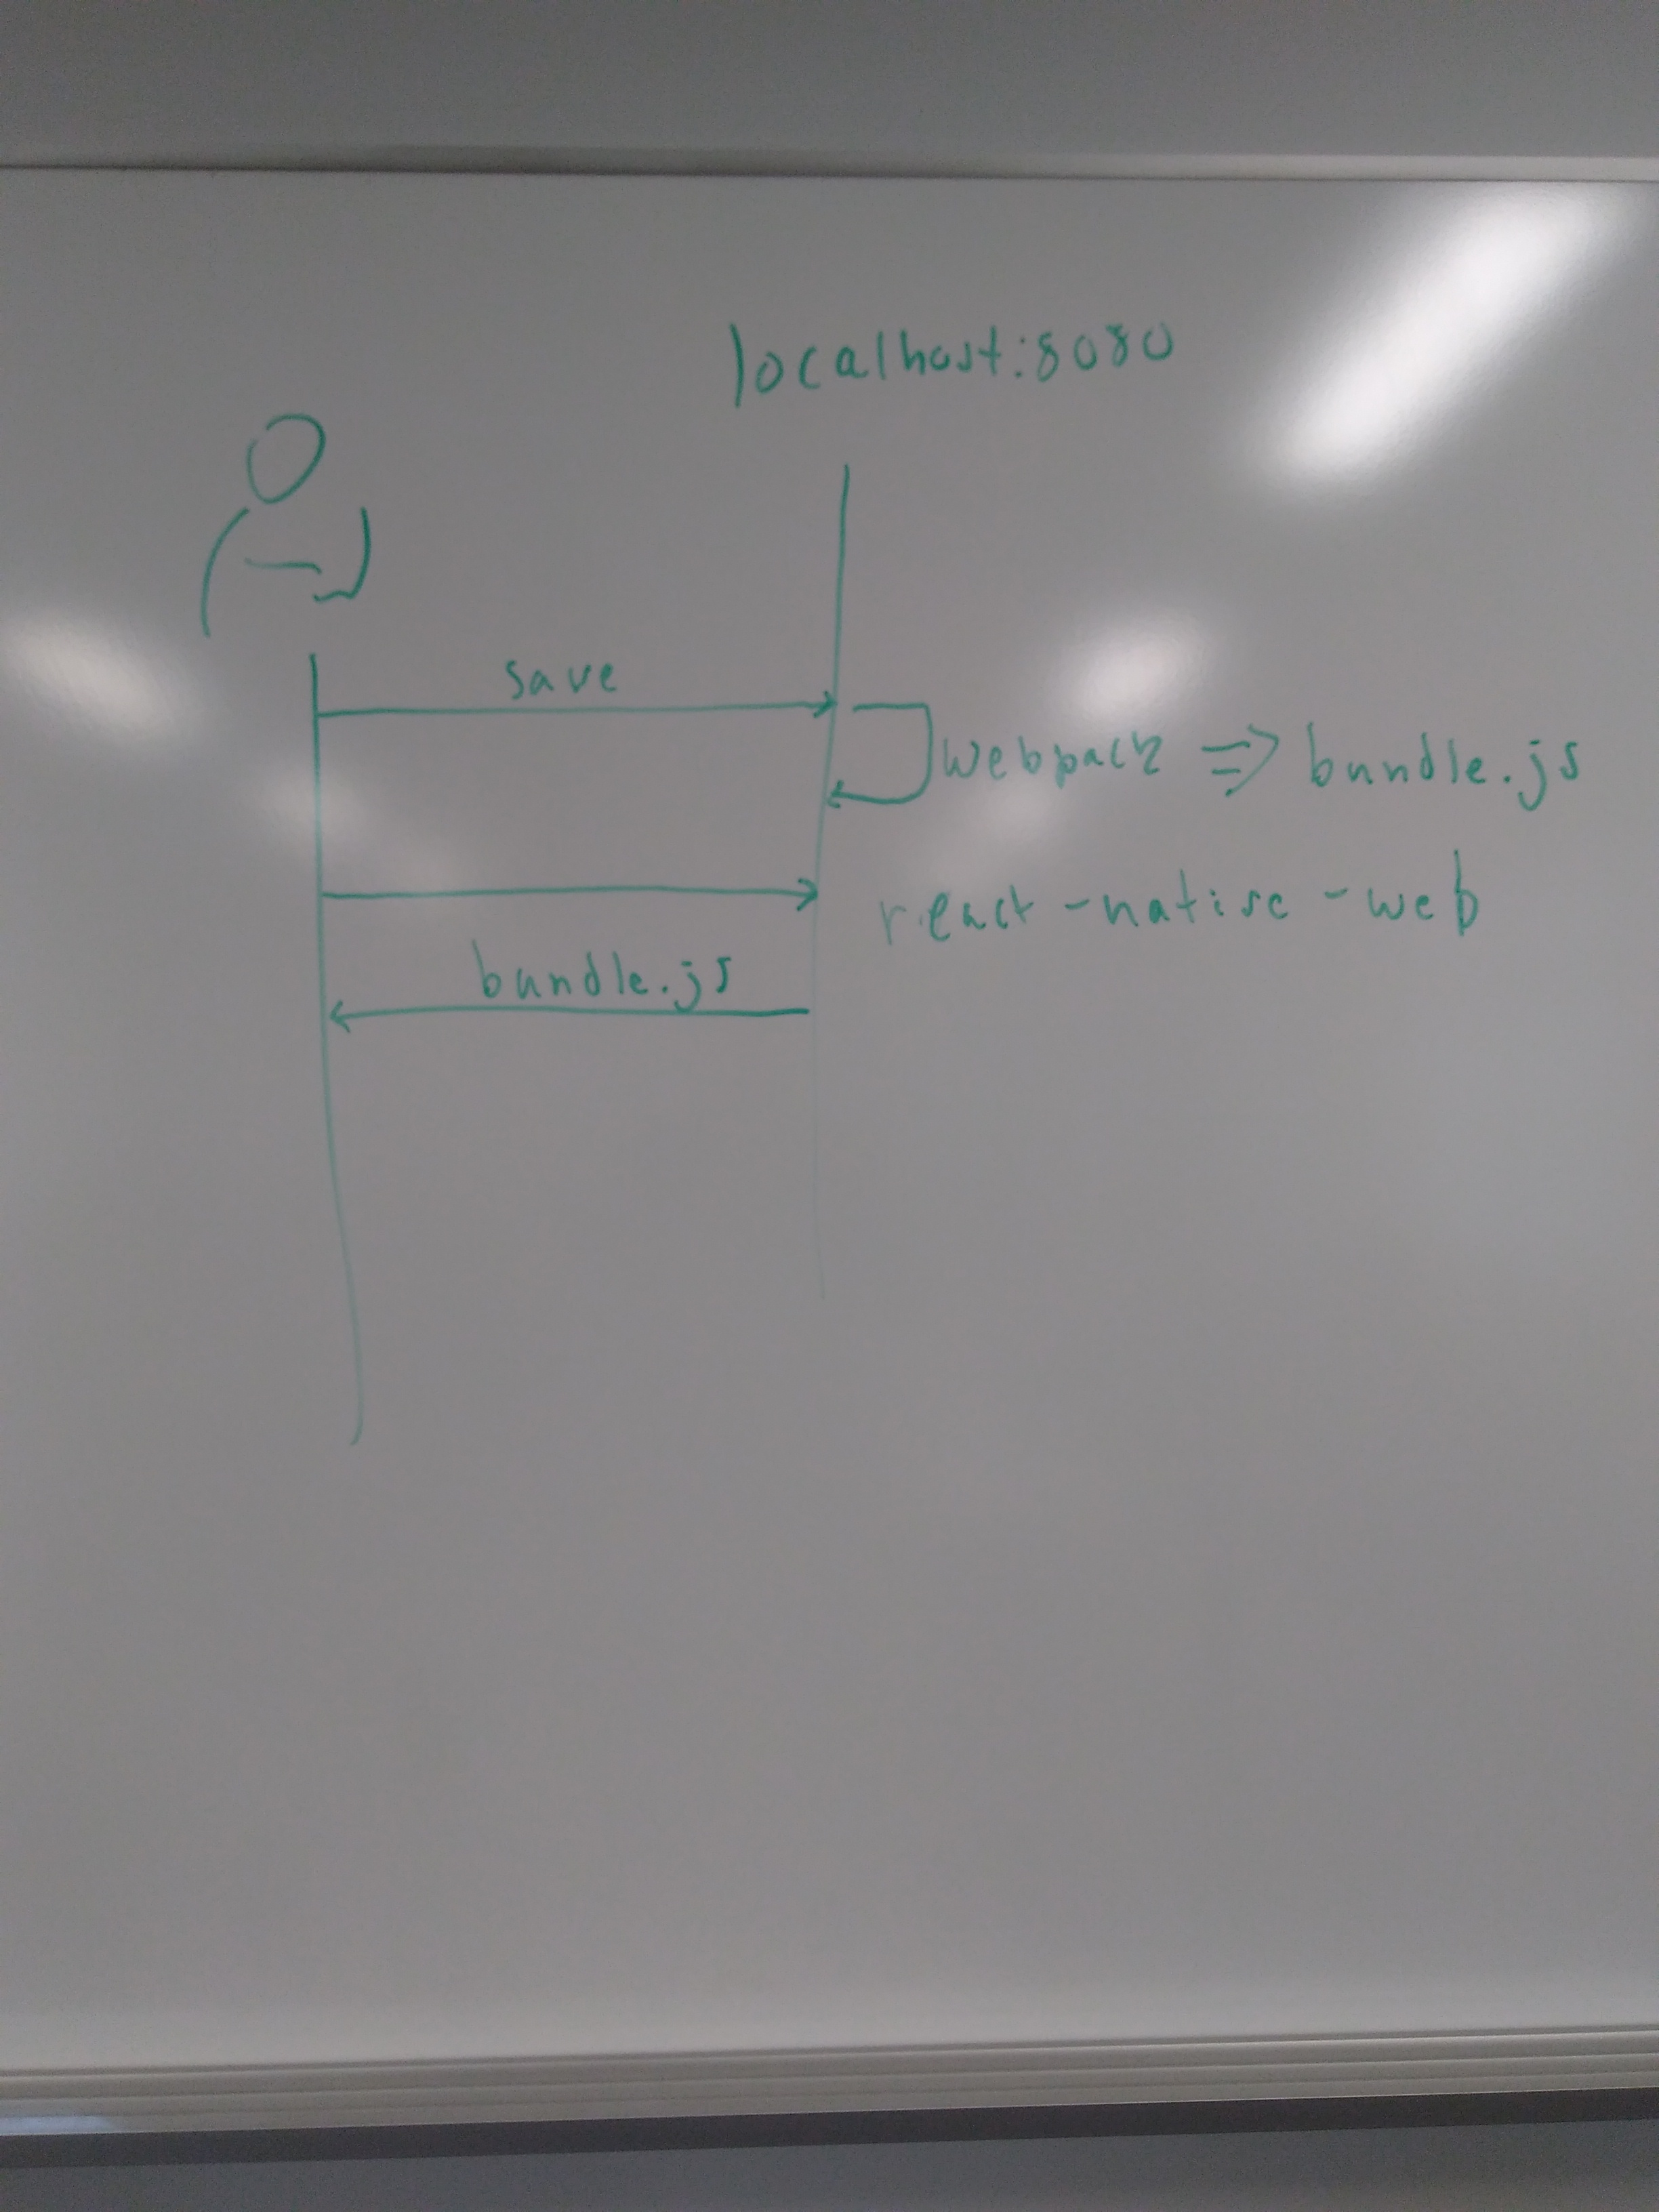 localhost:8080
save
webpack => bundle.js
react-native-web
bundle.js